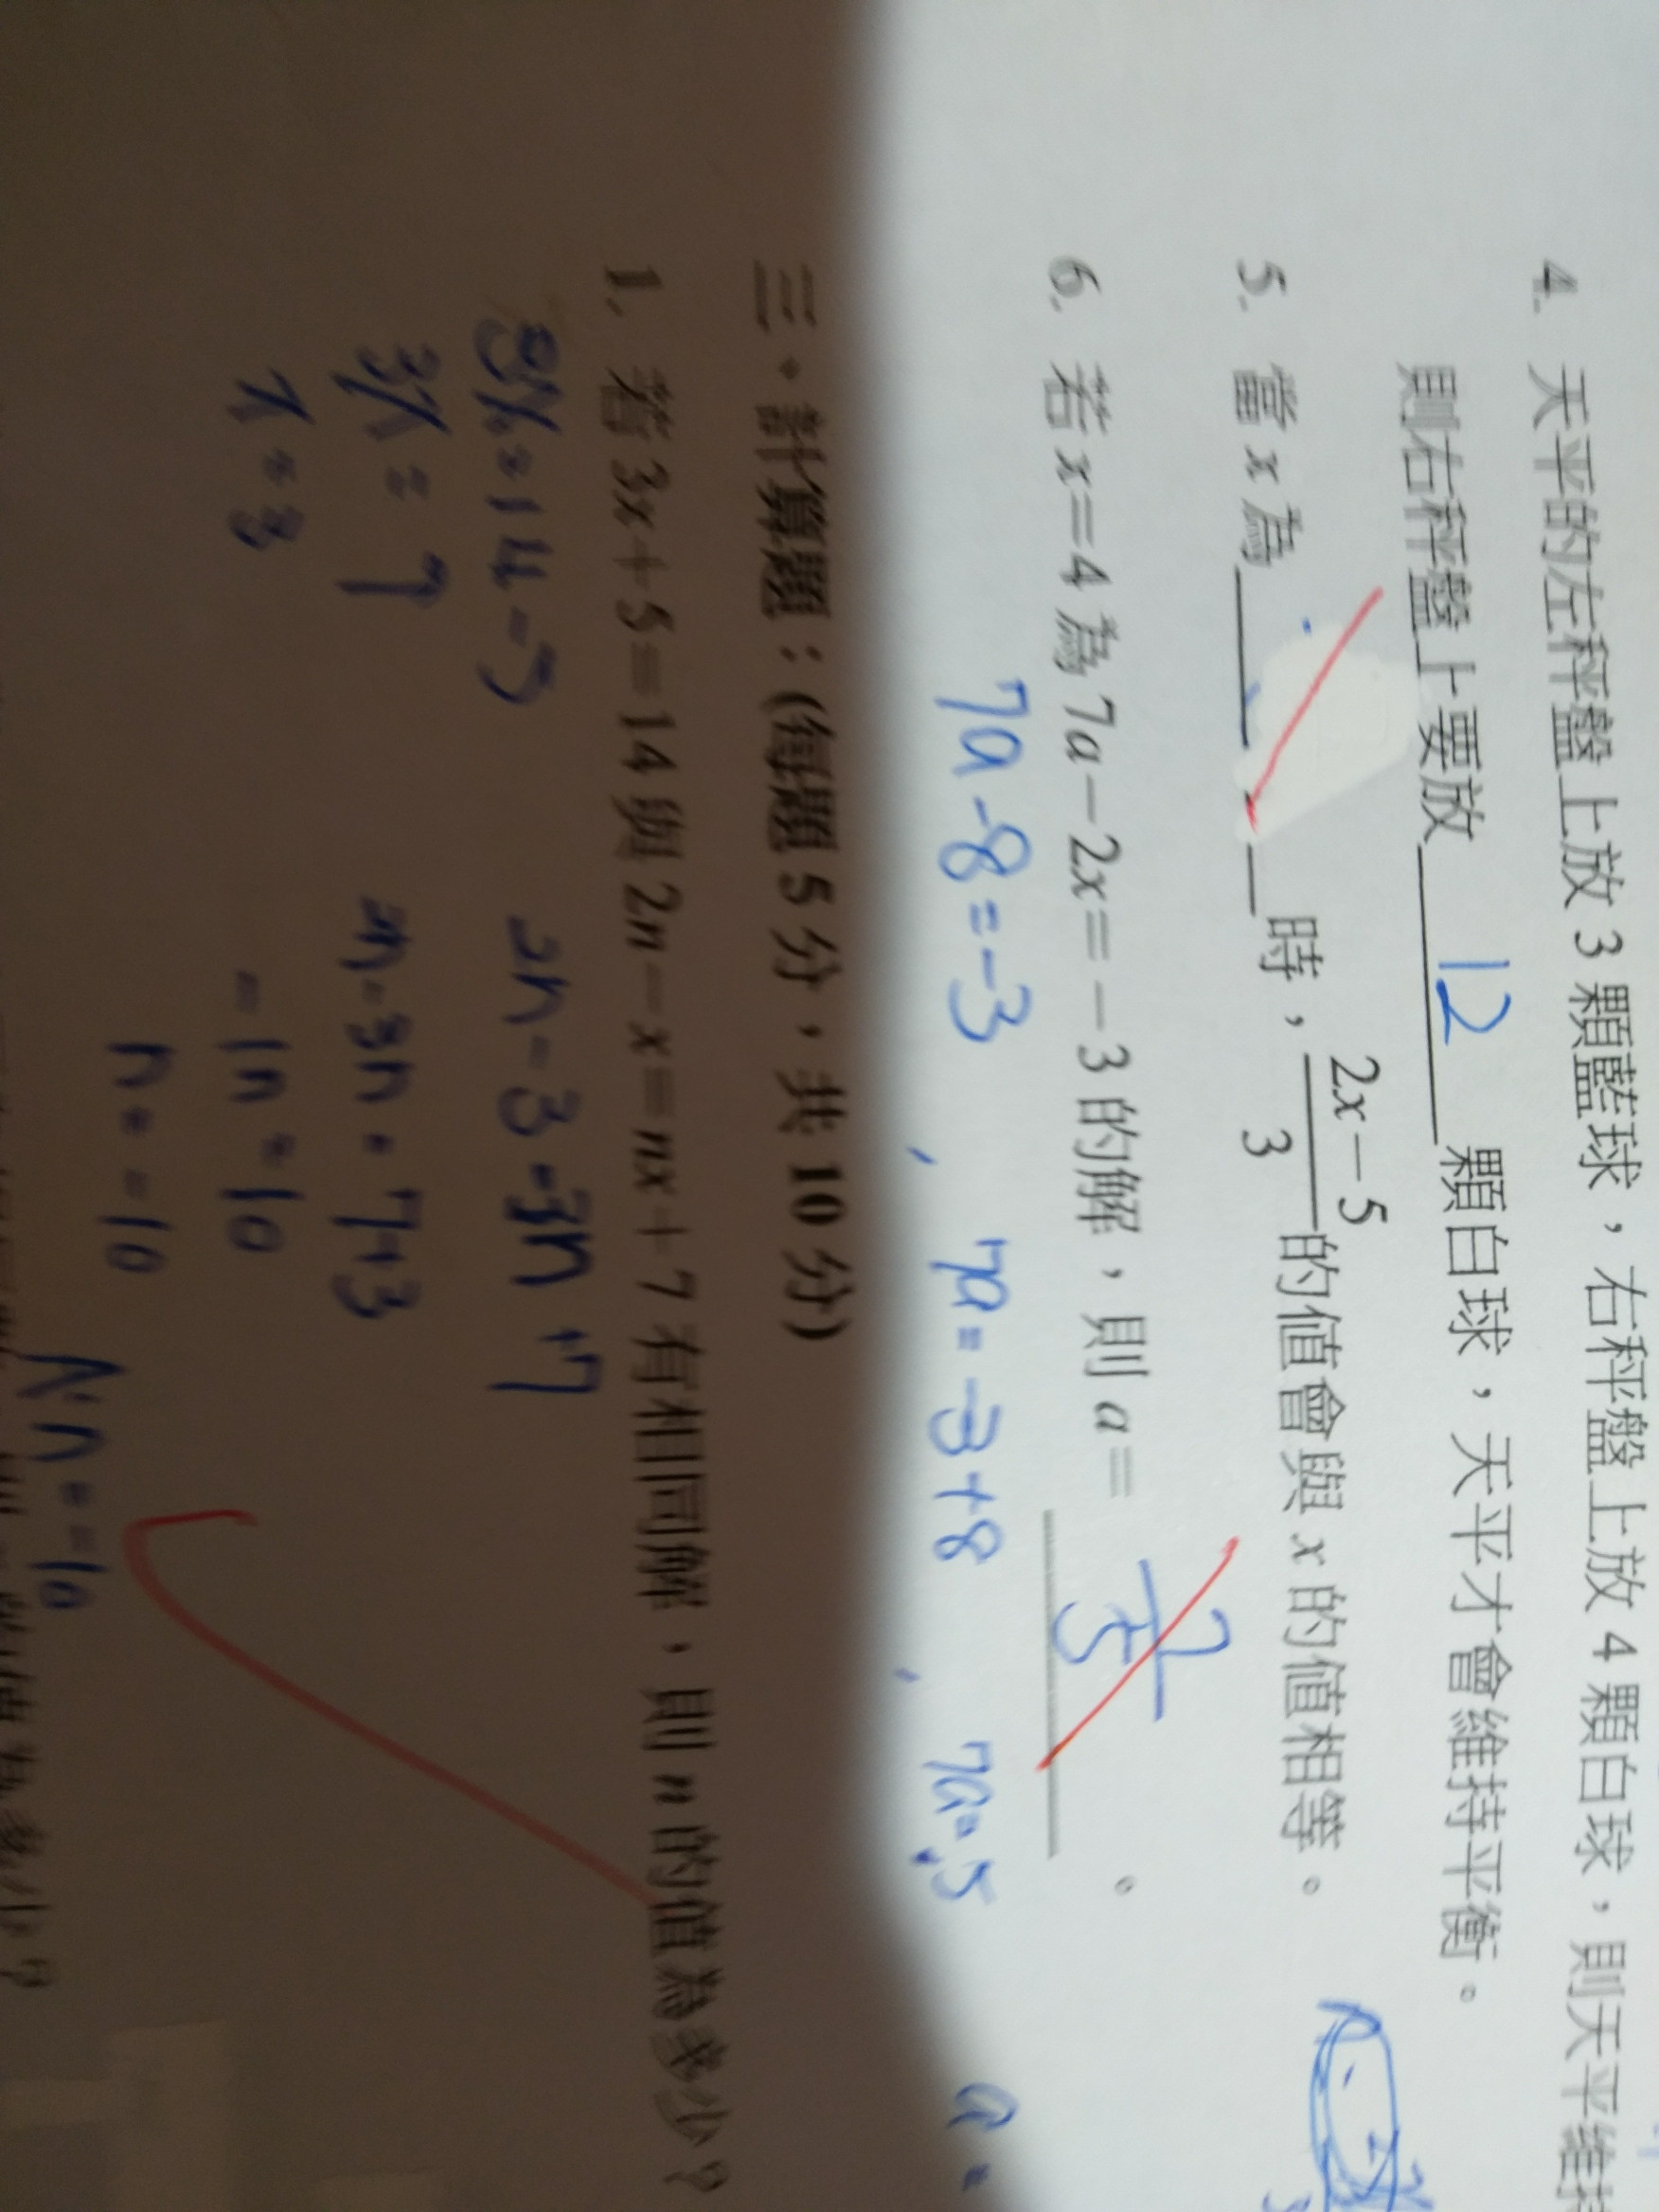 4. 天平的左秤盤上放 3 顆藍球,右秤盤上放 4 顆白球,則天平維持
則右秤盤上要放 12 顆白球,天平才會維持平衡。
5. 當 x 為 時,\frac{2x-5}{3} 的值會與 x 的值相等。
6. 若 x=4 為 7a-2x=-3 的解,則 a= \frac{7}{5} 。
7a-8=-3 , 7a=-3+8 , 7a=5 a=
三、計算題:(每題 5 分,共 10 分)
1. 若 3x+5=14 與 2n-x=nx+7 有相同解,則 n 的值為多少?
3x=14-5 2n-3=3n+7
3x=9 2n-3n=7+3
x=3 -1n=10
n=-10
n=-10